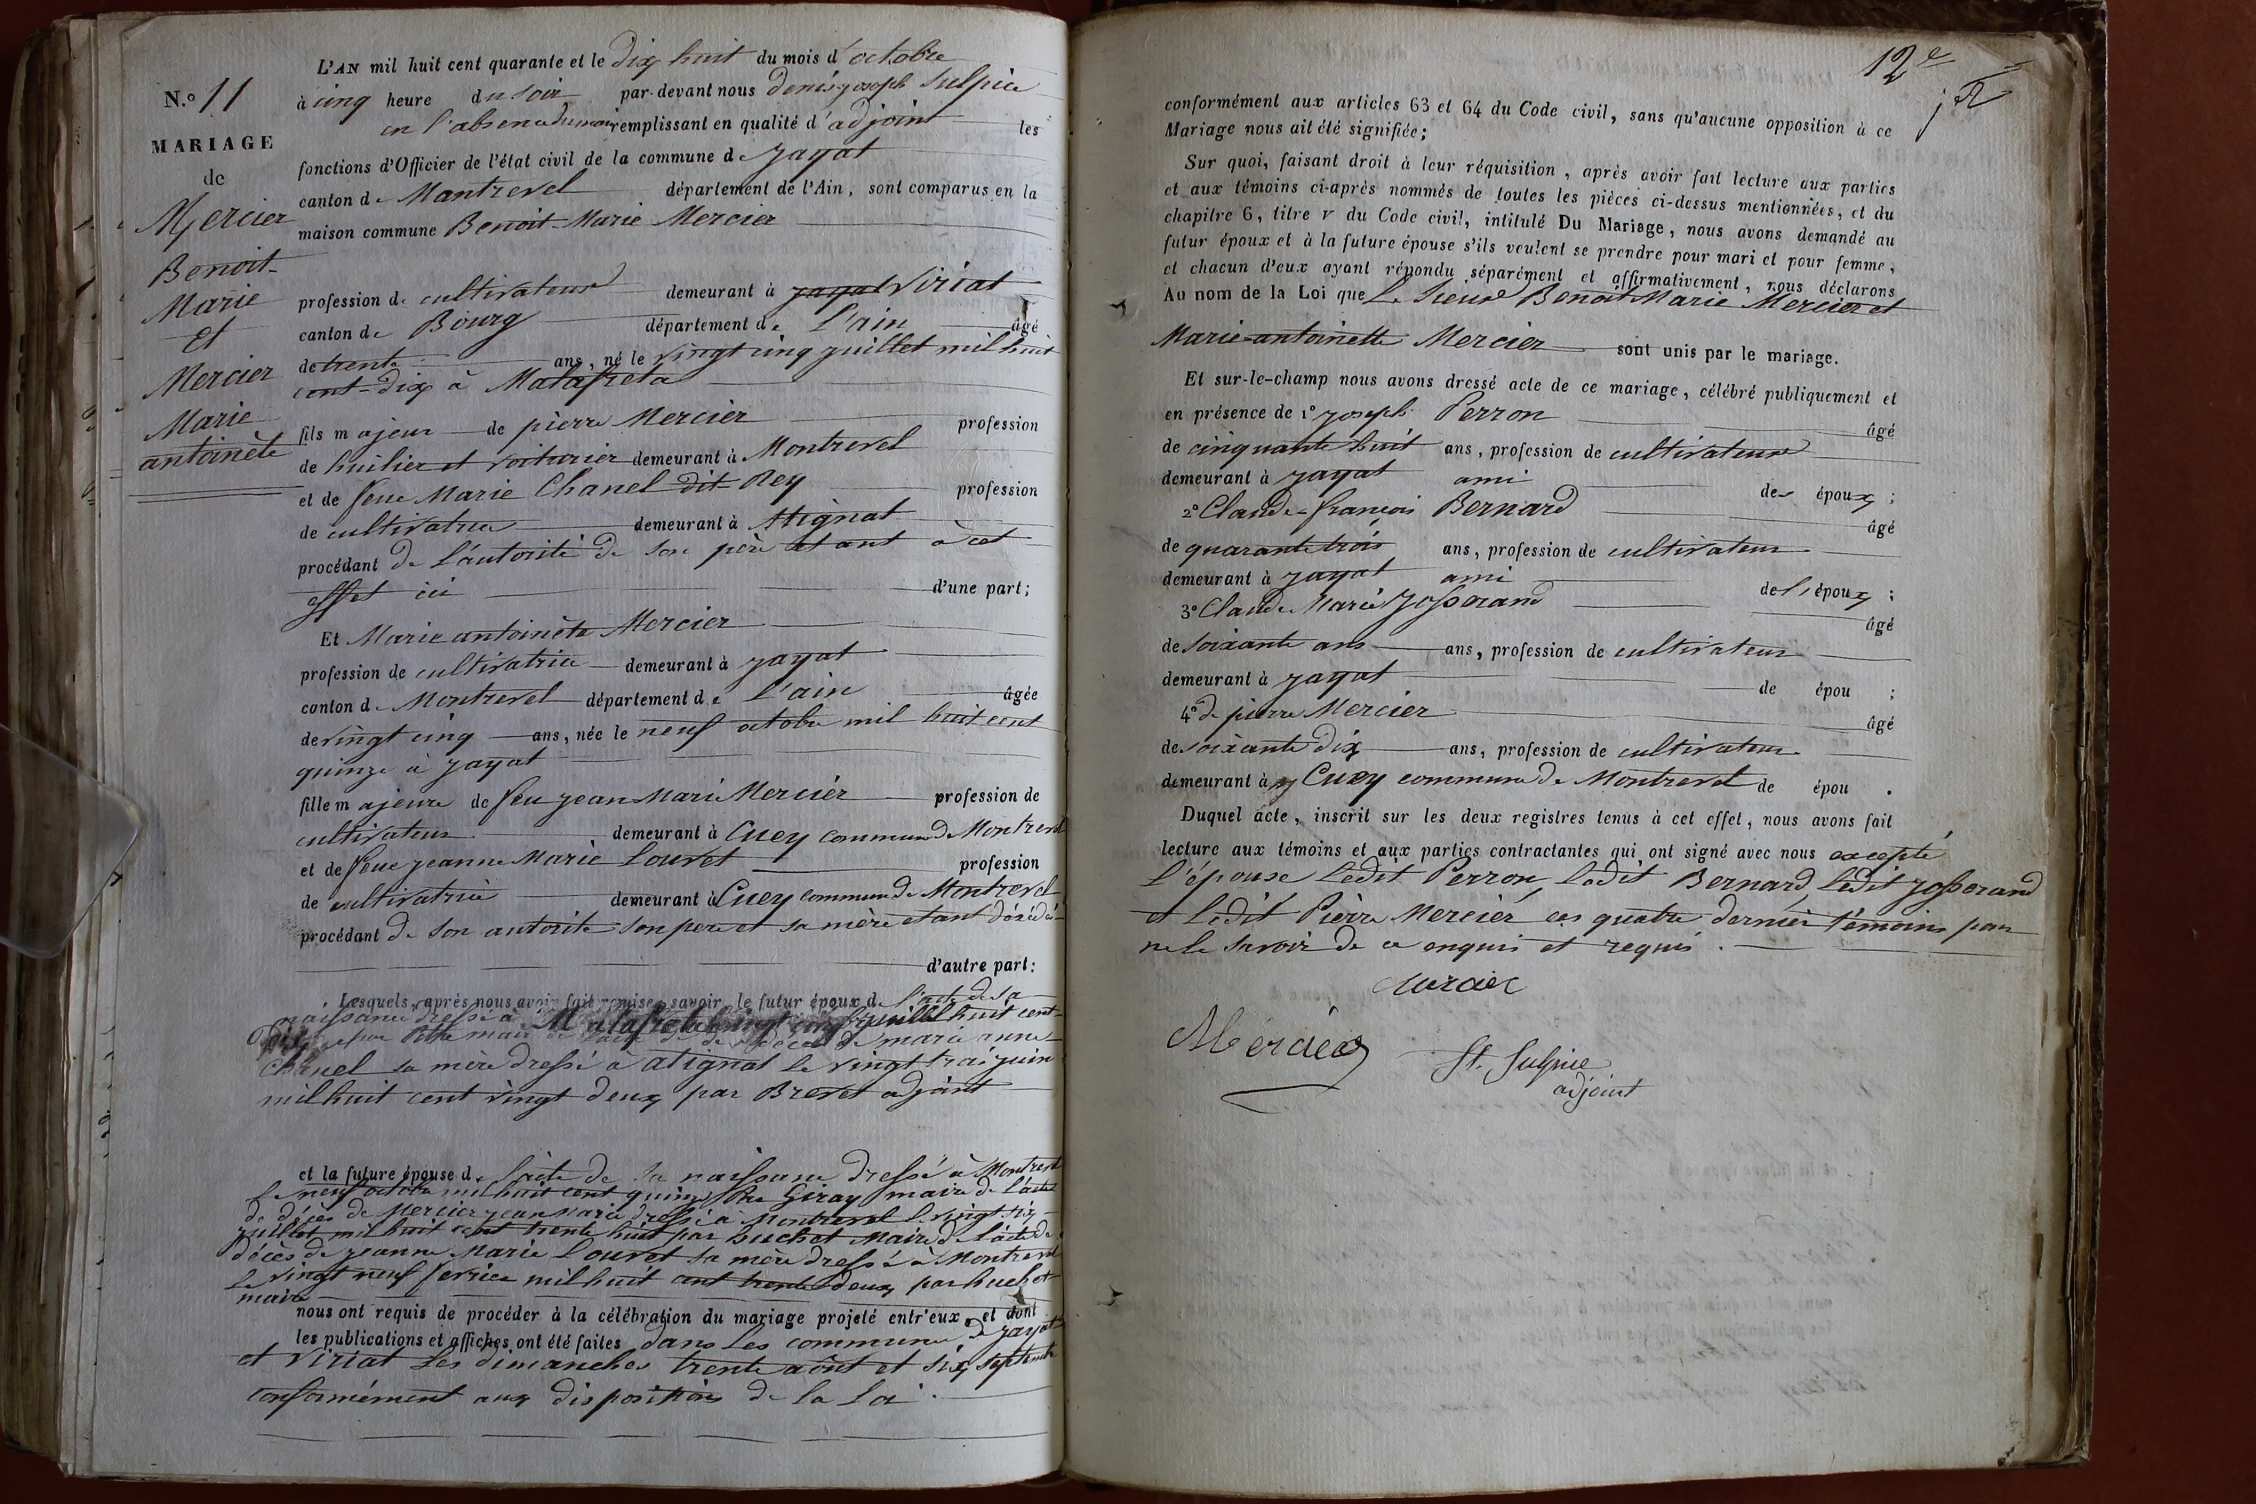 L'AN mil huit cent quarante et le dix huit du mois d'octobre
N.o 11
à cinq heure du soir par-devant nous denis joseph Sulpice
en l'absence du maire remplissant en qualité d'adjoint les
MARIAGE
de
fonctions d'Officier de l'état civil de la commune de jayat
canton de Montrevel département de l'Ain, sont comparus en la
maison commune Benoit-Marie Mercier
Mercier
Benoit-
Marie
et
Mercier
Marie
antoinète
profession de cultivateur demeurant à jayat Viriat
canton de Bourg département de L'ain âgé
de trente ans, né le vingt cinq juillet mil huit
cent-dix à Malafreta
fils majeur de pierre Mercier profession
de huilier et voiturier demeurant à Montrevel
et de feue Marie Chanel dit Rey profession
de cultivatrice demeurant à Atignat
procédant de l'autorité de son père étant à cet
effet ici d'une part;
Et Marie antoinète Mercier
profession de cultivatrice demeurant à jayat
canton de Montrevel département de L'ain âgée
de vingt cinq ans, née le neuf octobre mil huit cent
quinze à jayat
fille majeure de feu jean Marie Mercier profession de
cultivateur demeurant à Cuey commune de Montrevel
et de feue jeanne Marie Louvet profession
de cultivatrice demeurant à Cuey commune de Montrevel
procédant de son autorité son pere et sa mère étant décédés
d'autre part:
Lesquels, après nous avoir fait remise, savoir, le futur époux de l'acte de sa
naissance dressé à Malafreta le vingt cinq juillet huit cent
dix par maire de l'acte de décès de marie anne
Chanel sa mère dressé à atignat le vingt trai juin
mil huit cent vingt deux par Brevet adjoint
et la future épouse de l'acte de sa naissance dressé à Montrevel
le neuf octobre mil huit cent quinze par Giray maire de l'acte
de décès de Mercier jean Marie dressé à Montrevel le vingt six
juillet mil huit cent trente huit par huchet Maire de l'acte de
décès de jeanne Marie Louvet sa mère dressé à Montrevel
le vingt neuf fevrier mil huit cent trente deux par huchet
maire
nous ont requis de procéder à la célébration du mariage projeté entr'eux, et dont
les publications et affiches ont été faites dans les commune de jayat
et Viriat les dimanches trente août et six septembre
conformément aux dispositions de la Loi.
12e
conformément aux articles 63 et 64 du Code civil, sans qu'aucune opposition à ce
Mariage nous ait été signifiée;
Sur quoi, faisant droit à leur réquisition, après avoir fait lecture aux parties
et aux témoins ci-après nommés de toutes les pièces ci-dessus mentionnées, et du
chapitre 6, titre v du Code civil, intitulé Du Mariage, nous avons demandé au
futur époux et à la future épouse s'ils veulent se prendre pour mari et pour femme,
et chacun d'eux ayant répondu séparément et affirmativement, nous déclarons
Au nom de la Loi que Le Sieur Benoit Marie Mercier et
Marie-antoinette Mercier sont unis par le mariage.
Et sur-le-champ nous avons dressé acte de ce mariage, célébré publiquement et
en présence de 1o joseph Perron âgé
de cinquante huit ans, profession de cultivateur
demeurant à jayat ami des époux;
2o Claude-francois Bernard âgé
de quarante trois ans, profession de cultivateur
demeurant à jayat ami de l'époux;
3o Claude Marie josserand âgé
de soixante ans ans, profession de cultivateur
demeurant à jayat de épou ;
4o de pierre Mercier âgé
de soixante dix ans, profession de cultivateur
demeurant à Cuey commune de Montrevel de épou .
Duquel acte, inscrit sur les deux registres tenus à cet effet, nous avons fait
lecture aux témoins et aux parties contractantes qui ont signé avec nous excepté
l'épouse ledit Perron ledit Bernard ledit josserand
et ledit Pierre Mercier ces quatre dernier témoins pour
ne le savoir de ce enquis et requis.
Mercier
Mercier
St. Sulpice
adjoint